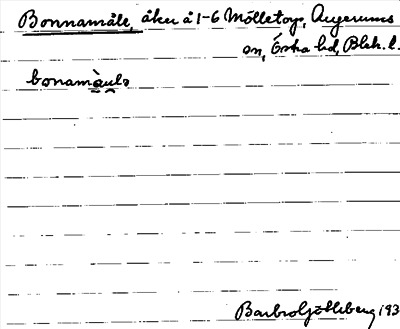 Bonnamåle, åker å 1-6 Mölletorp, Augerums
sn, Östra hd, Blek. l.
bonamàulə
Barbro Götlleberg 193